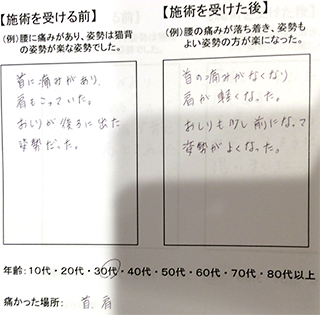 【施術を受ける前】
(例)腰に痛みがあり、姿勢は猫背
の姿勢が楽な姿勢でした。
首に痛みがあり、
肩もこっていた。
おしりが後ろに出た
姿勢だった。
【施術を受けた後】
(例)腰の痛みが落ち着き、姿勢も
よい姿勢の方が楽になった。
首の痛みがなくなり
肩が軽くなった。
おしりも少し前になって
姿勢がよくなった。
年齢:10代・20代・30代・40代・50代・60代・70代・80代以上
痛かった場所: 首、肩